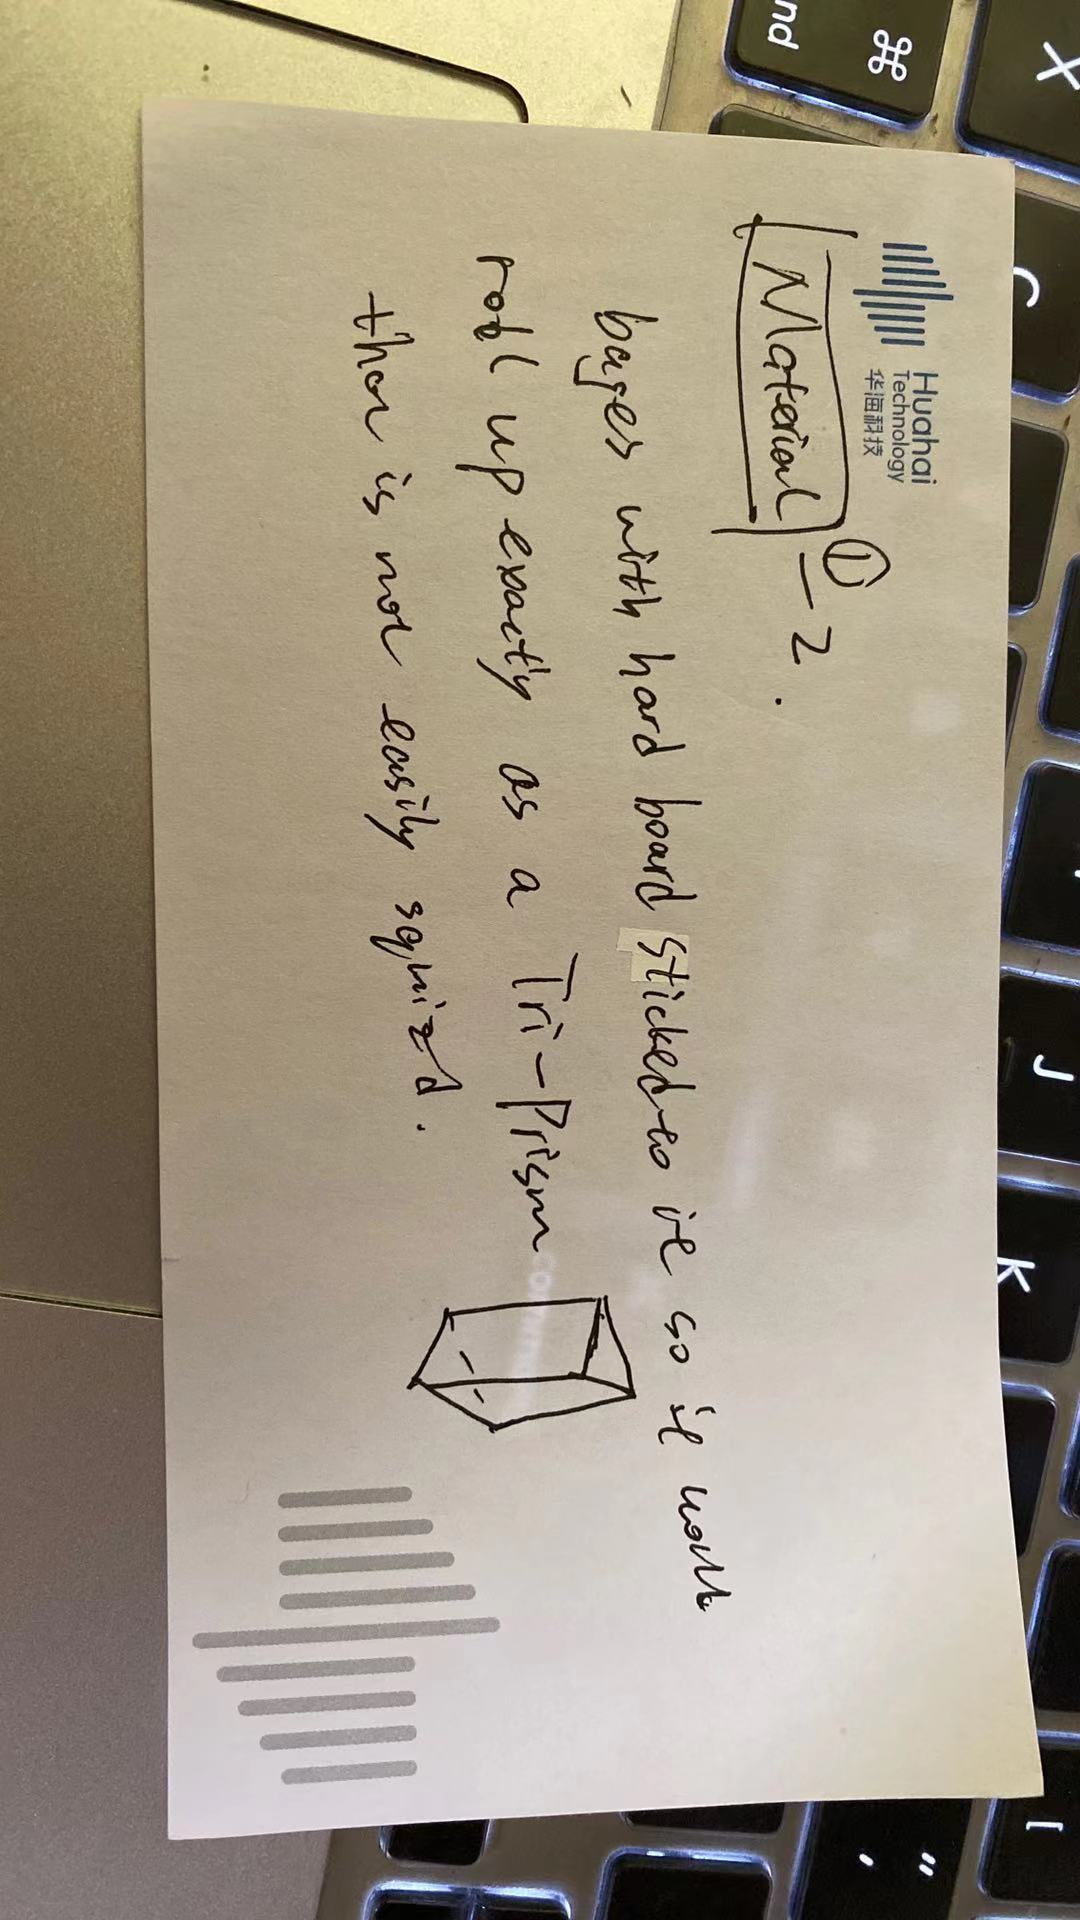 Huahai
Technology
华海科技
Material ① - 2.
bages with hard board sticked to it so it
roll up exactly as a Tri-Prism
that is not easily squizd.
nd
⌘
X
C
J
K
[
"
'